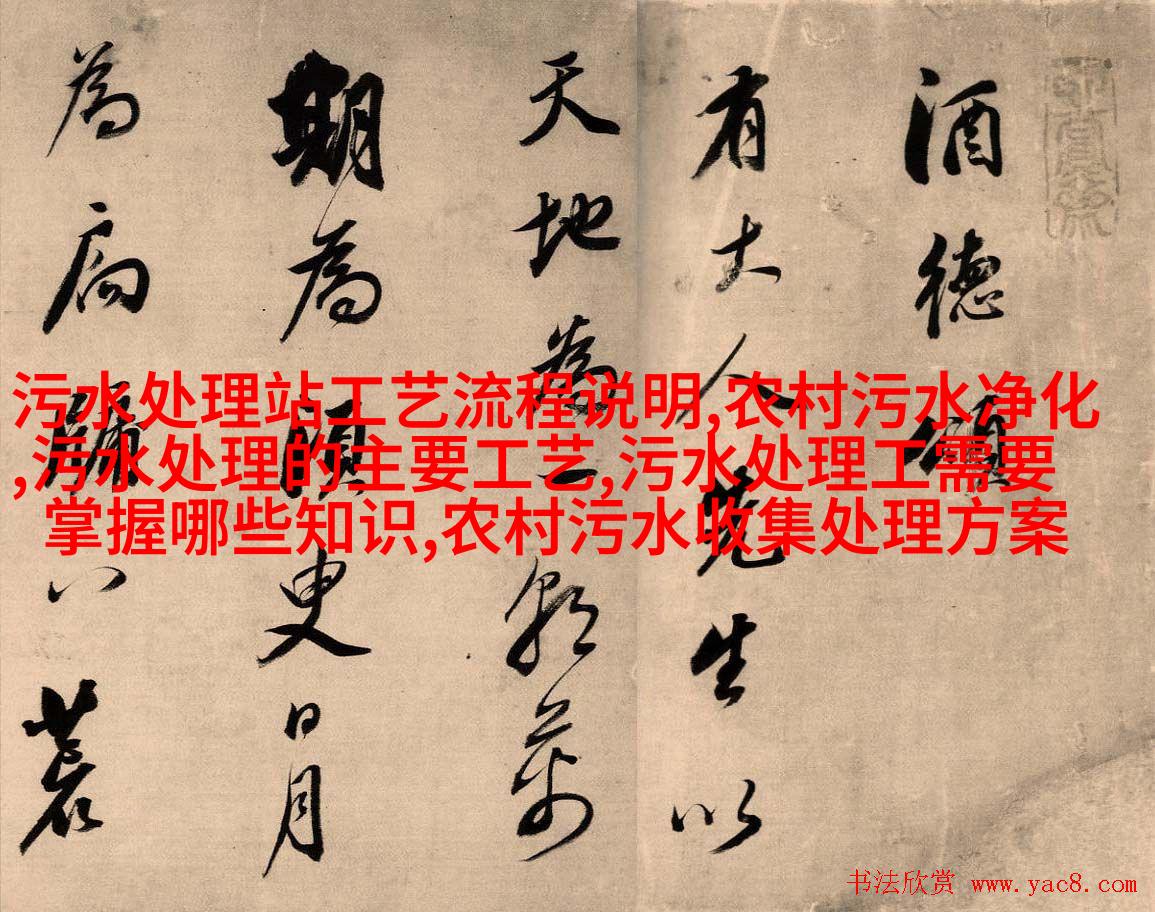 酒德頌
有大人先生以
天地為一朝萬
期為須臾日月
為扃牖八荒
污水处理站工艺流程说明,农村污水净化
,污水处理的主要工艺,污水处理工需要
掌握哪些知识,农村污水收集处理方案
书法欣赏 www.yac8.com